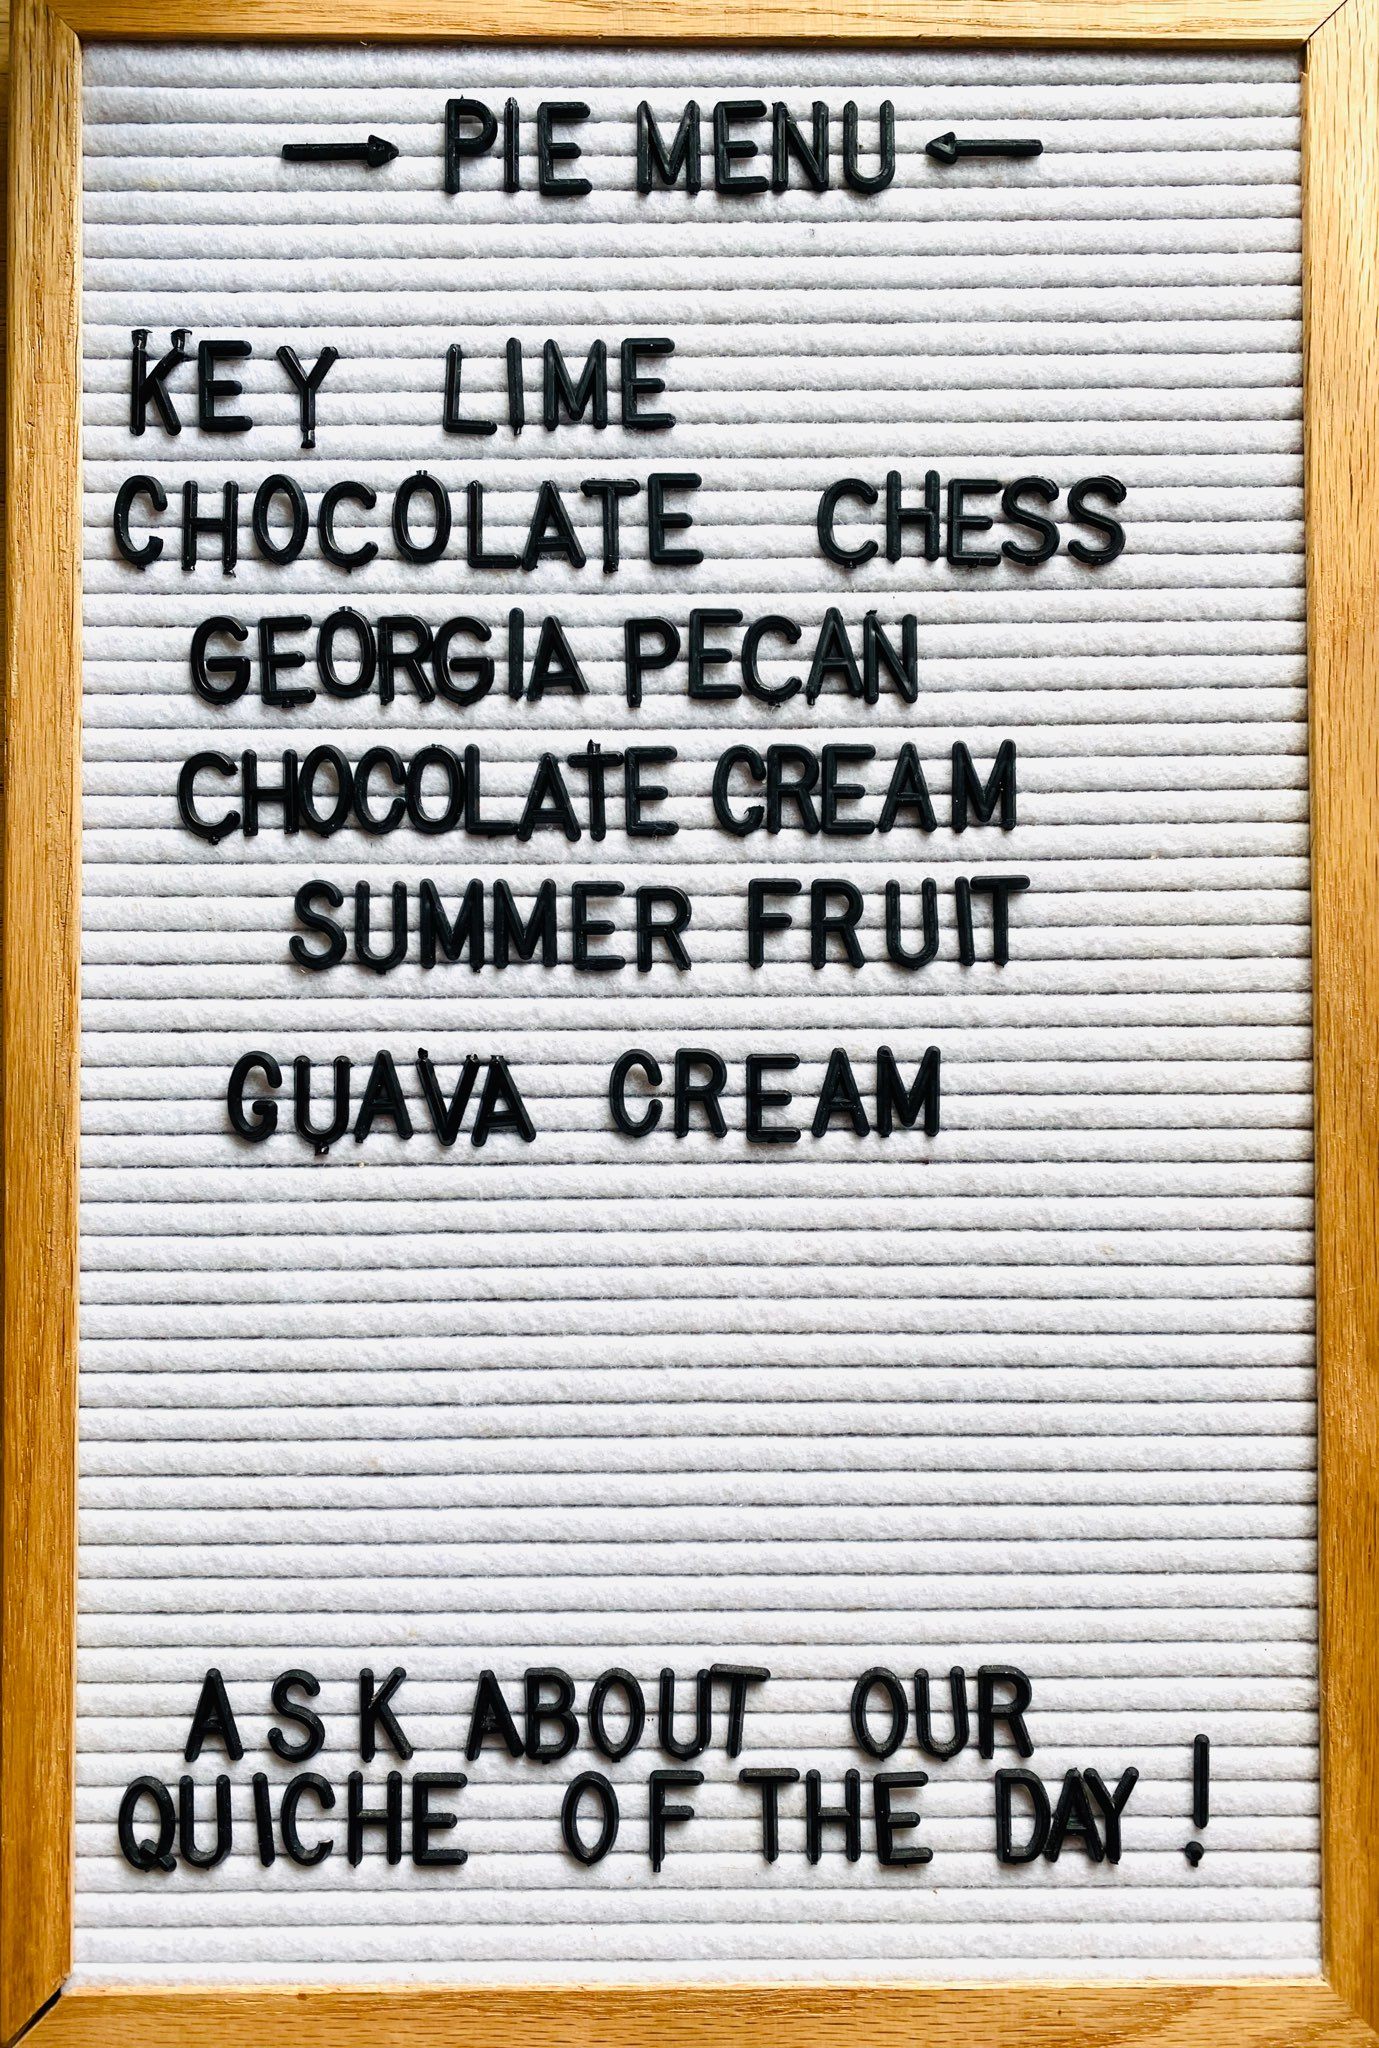 → PIE MENU ←
KEY LIME
CHOCOLATE CHESS
GEORGIA PECAN
CHOCOLATE CREAM
SUMMER FRUIT
GUAVA CREAM
ASK ABOUT OUR
QUICHE OF THE DAY!